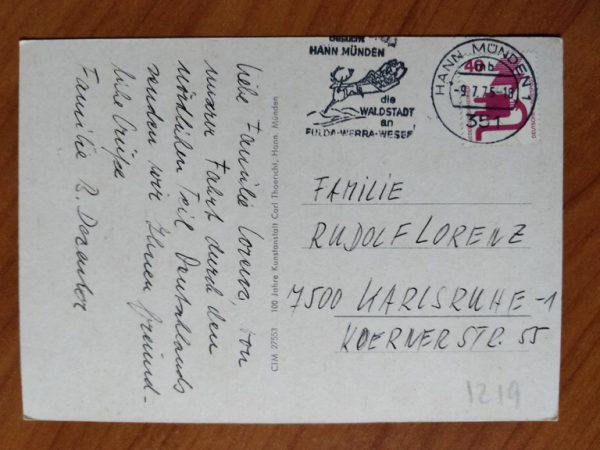 Liebe Familie Lorenz, von
unserer Fahrt durch den
nördlichen Teil Deutschlands
senden wir Ihnen freund-
liche Grüße
Familie B.
CTM 27553 100 Jahre Kunstanstalt Carl Thoericht, Hann. Münden
besucht
HANN MÜNDEN
die
WALDSTADT
an
FULDA-WERRA-WESER
HANN. MÜNDEN 1
mb
-9.7.75-18
351
40
FAMILIE
RUDOLF LORENZ
7500 KARLSRUHE-1
KOERNERSTR. 55
1219